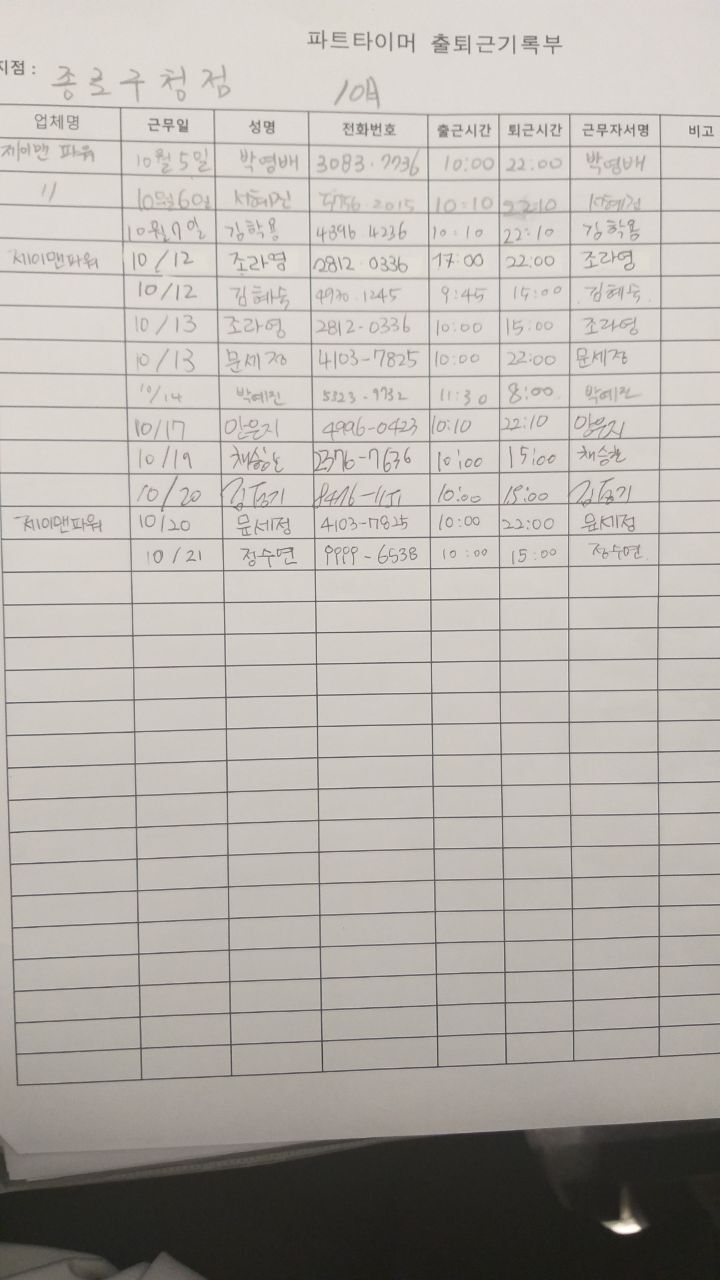 파트타이머 출퇴근기록부
지점 : 종로구청점 10月
업체명 근무일 성명 전화번호 출근시간 퇴근시간 근무자서명 비고
제이맨 파워 10월 5일 박영배 3083.7736 10:00 22:00 박영배
〃 10월 6일 서혜진 2015 10:10 22:10 서혜진
10월 7일 김학용 4396 4236 10:10 22:10 김학용
제이맨파워 10/12 조라영 2812.0336 17:00 22:00 조라영
10/12 김혜숙 4930.1245 9:45 15:00 김혜숙
10/13 조라영 2812-0336 10:00 15:00 조라영
10/13 문세정 4103-7825 10:00 22:00 문세정
10/14 박예진 5323.9732 11:30 8:00 박예진
10/17 안은지 4996-0423 10:10 22:10 안은지
10/19 채승한 2376-7636 10:00 15:00 채승한
10/20 10:00 15:00
제이맨파워 10/20 문세정 4103-7825 10:00 22:00 문세정
10/21 정수연 9999-6538 10:00 15:00 정수연